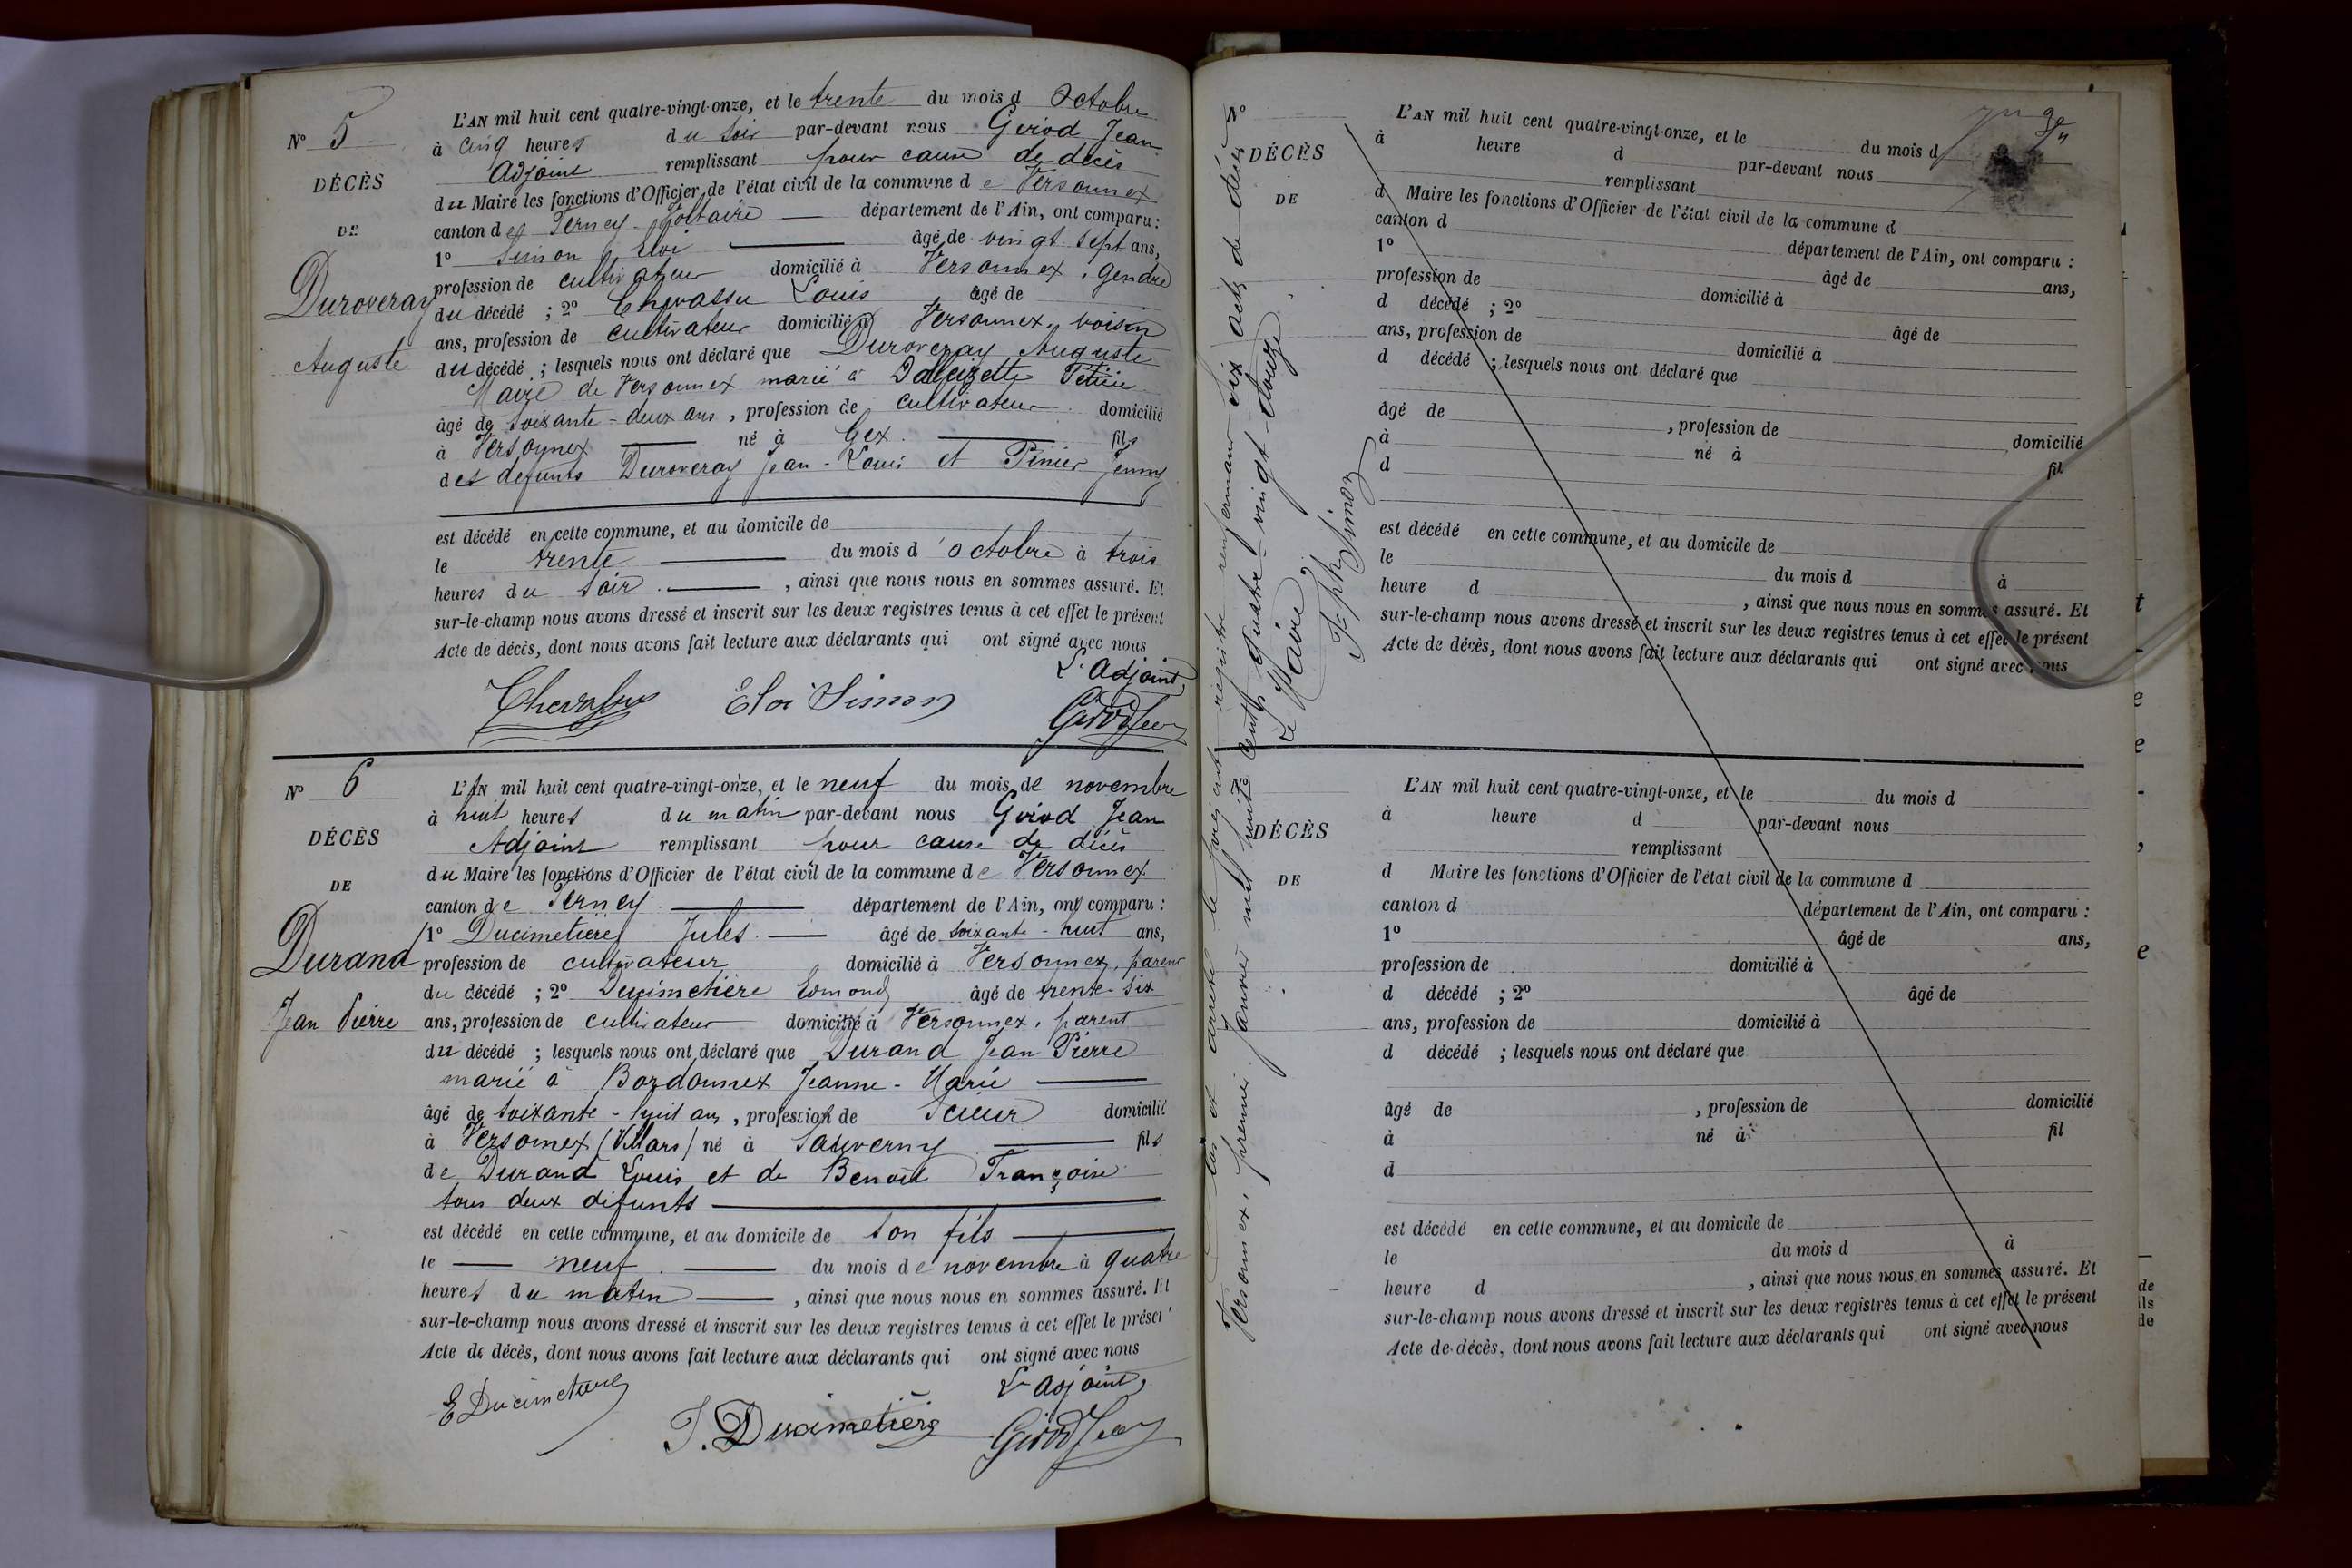 N° 5
DÉCÈS
DE
Duroveray
Auguste
L'AN mil huit cent quatre-vingt-onze, et le trente du mois d Octobre
à cinq heures du soir par-devant nous Girod Jean
Adjoint remplissant pour cause de décès
du Maire les fonctions d'Officier de l'état civil de la commune de Versonnex
canton de Ferney-Voltaire département de l'Ain, ont comparu :
1° Simon Eloi âgé de vingt sept ans,
profession de cultivateur domicilié à Versonnex, gendre
du décédé ; 2° Chevassu Louis âgé de
ans, profession de cultivateur domicilié à Versonnex, voisin
du décédé ; lesquels nous ont déclaré que Duroveray Auguste
Maire de Versonnex marié à
âgé de soixante-deux ans, profession de cultivateur domicilié
à Versonnex né à Gex fils
des defunts Duroveray Jean-Louis et Pinier Jenny
est décédé en cette commune, et au domicile de
le trente du mois d'octobre à trois
heures du soir, ainsi que nous nous en sommes assuré. Et
sur-le-champ nous avons dressé et inscrit sur les deux registres tenus à cet effet le présent
Acte de décès, dont nous avons fait lecture aux déclarants qui ont signé avec nous
L'Adjoint,
Chevassu Eloi Simon Girod Jean
N° 6
DÉCÈS
DE
Durand
Jean Pierre
L'AN mil huit cent quatre-vingt-onze, et le neuf du mois de novembre
à huit heures du matin par-devant nous Girod Jean
Adjoint remplissant pour cause de décès
du Maire les fonctions d'Officier de l'état civil de la commune de Versonnex
canton de Ferney département de l'Ain, ont comparu :
1° Ducimetière Jules âgé de soixante-huit ans,
profession de cultivateur domicilié à Versonnex, parent
du décédé ; 2° Ducimetière Edmond âgé de trente-six
ans, profession de cultivateur domicilié à Versonnex, parent
du décédé ; lesquels nous ont déclaré que Durand Jean Pierre
marié à Bordonnex Jeanne-Marie
âgé de soixante-huit ans, profession de Scieur domicilié
à Versonnex (Villars) né à Sauverny fils
de Durand Louis et de Benoit Françoise
tous deux défunts
est décédé en cette commune, et au domicile de son fils
le neuf du mois de novembre à quatre
heures du matin, ainsi que nous nous en sommes assuré. Et
sur-le-champ nous avons dressé et inscrit sur les deux registres tenus à cet effet le présent
Acte de décès, dont nous avons fait lecture aux déclarants qui ont signé avec nous
L'adjoint,
E Ducimetière J. Ducimetière Girod Jean
clos et arrêté le présent registre renfermant six acts de décès
Versonnex, premier Janvier mil huit cent quatre-vingt-douze.
Le Maire,
Jph Simon
N°
DÉCÈS
DE
L'AN mil huit cent quatre-vingt-onze, et le du mois d
à heure d par-devant nous
remplissant
d Maire les fonctions d'Officier de l'état civil de la commune d
canton d département de l'Ain, ont comparu :
1° âgé de ans,
profession de domicilié à
d décédé ; 2° âgé de
ans, profession de domicilié à
d décédé ; lesquels nous ont déclaré que
âgé de , profession de domicilié
à né à fil
d
est décédé en cette commune, et au domicile de
le du mois d à
heure d , ainsi que nous nous en sommes assuré. Et
sur-le-champ nous avons dressé et inscrit sur les deux registres tenus à cet effet le présent
Acte de décès, dont nous avons fait lecture aux déclarants qui ont signé avec nous
N°
DÉCÈS
DE
L'AN mil huit cent quatre-vingt-onze, et le du mois d
à heure d par-devant nous
remplissant
d Maire les fonctions d'Officier de l'état civil de la commune d
canton d département de l'Ain, ont comparu :
1° âgé de ans,
profession de domicilié à
d décédé ; 2° âgé de
ans, profession de domicilié à
d décédé ; lesquels nous ont déclaré que
âgé de , profession de domicilié
à né à fil
d
est décédé en cette commune, et au domicile de
le du mois d à
heure d , ainsi que nous nous en sommes assuré. Et
sur-le-champ nous avons dressé et inscrit sur les deux registres tenus à cet effet le présent
Acte de décès, dont nous avons fait lecture aux déclarants qui ont signé avec nous